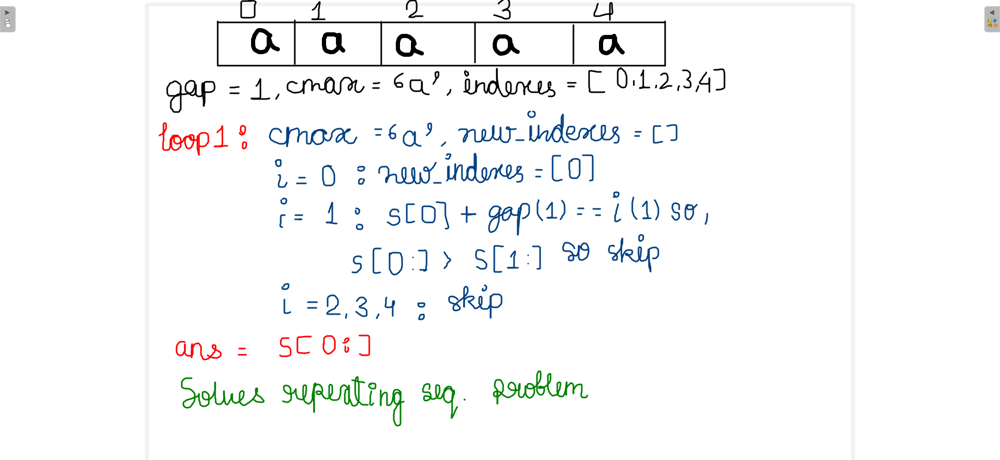 0 1 2 3 4
a a a a a
gap = 1, cmax = 'a', indexes = [ 0,1,2,3,4]
loop1 : cmax = 'a', new_indexes = []
i = 0 : new_indexes = [0]
i = 1 : s[0] + gap(1) == i(1) so,
s[0:] > s[1:] so skip
i = 2,3,4 : skip
ans = s[0:]
Solves repeating seq. problem